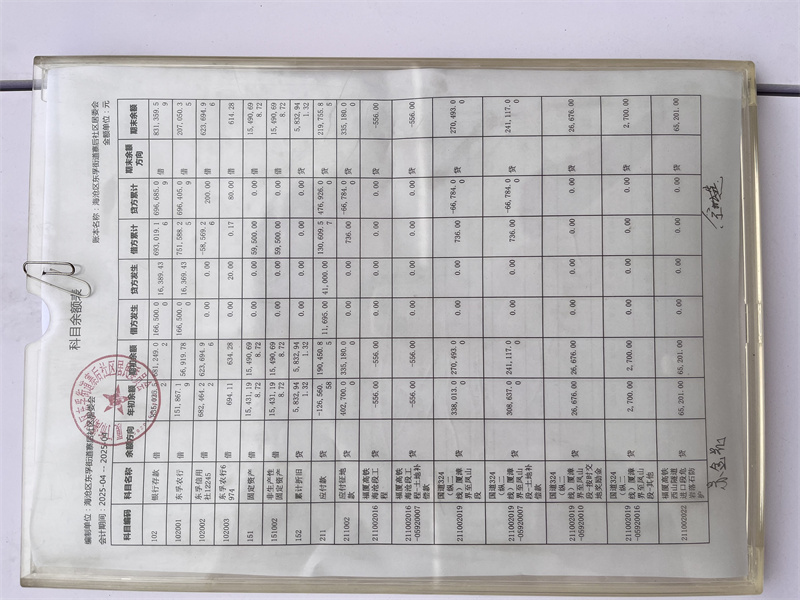 科目余额表
编制单位：海沧区东孚街道寨后社区居委会
账本名称：海沧区东孚街道寨后社区居委会
会计期间：2025-04 -- 2025-04
金额单位：元
科目编码 科目名称 余额方向 年初余额 期初余额 借方发生 贷方发生 借方累计 贷方累计 期末余额方向 期末余额
102 银行存款 借 166,500.00 16,389.43 693,019.16 696,685.09 借 831,359.59
102001 东孚农行 借 151,867.19 56,919.78 166,500.00 16,369.43 751,588.25 696,405.09 借 207,050.35
102002 东孚信用社12245 借 682,464.22 623,694.96 0.00 0.00 -58,569.26 200.00 借 623,694.96
102003 东孚农行6974 借 694.11 634.28 0.00 20.00 0.17 80.00 借 614.28
151 固定资产 借 15,431,198.72 15,490,698.72 0.00 0.00 59,500.00 0.00 借 15,490,698.72
151002 非生产性固定资产 借 15,431,198.72 15,490,698.72 0.00 0.00 59,500.00 0.00 借 15,490,698.72
152 累计折旧 贷 5,832,941.32 5,832,941.32 0.00 0.00 0.00 0.00 贷 5,832,941.32
211 应付款 贷 -126,560.58 190,450.85 11,695.00 41,000.00 130,609.57 476,926.00 贷 219,755.85
211002 应付征地款 贷 402,700.00 335,180.00 0.00 0.00 736.00 -66,784.00 贷 335,180.00
211002016 福厦高铁海沧段工程 贷 -556.00 -556.00 0.00 0.00 0.00 0.00 贷 -556.00
211002016-05920007 福厦高铁海沧段工程-土地补偿款 贷 -556.00 -556.00 0.00 0.00 0.00 0.00 贷 -556.00
211002019 国道324（纵二线）厦漳界至凤山段 贷 338,013.00 270,493.00 0.00 0.00 736.00 -66,784.00 贷 270,493.00
211002019-05920007 国道324（纵二线）厦漳界至凤山段-土地补偿款 贷 308,637.00 241,117.00 0.00 0.00 736.00 -66,784.00 贷 241,117.00
211002019-05920010 国道324（纵二线）厦漳界至凤山段-按时交地奖励金 贷 26,676.00 26,676.00 0.00 0.00 0.00 0.00 贷 26,676.00
211002019-05920016 国道324（纵二线）厦漳界至凤山段-其他 贷 2,700.00 2,700.00 0.00 0.00 0.00 0.00 贷 2,700.00
211002022 福厦高铁西山隧道进口段危岩落石防护 贷 65,201.00 65,201.00 0.00 0.00 0.00 0.00 贷 65,201.00